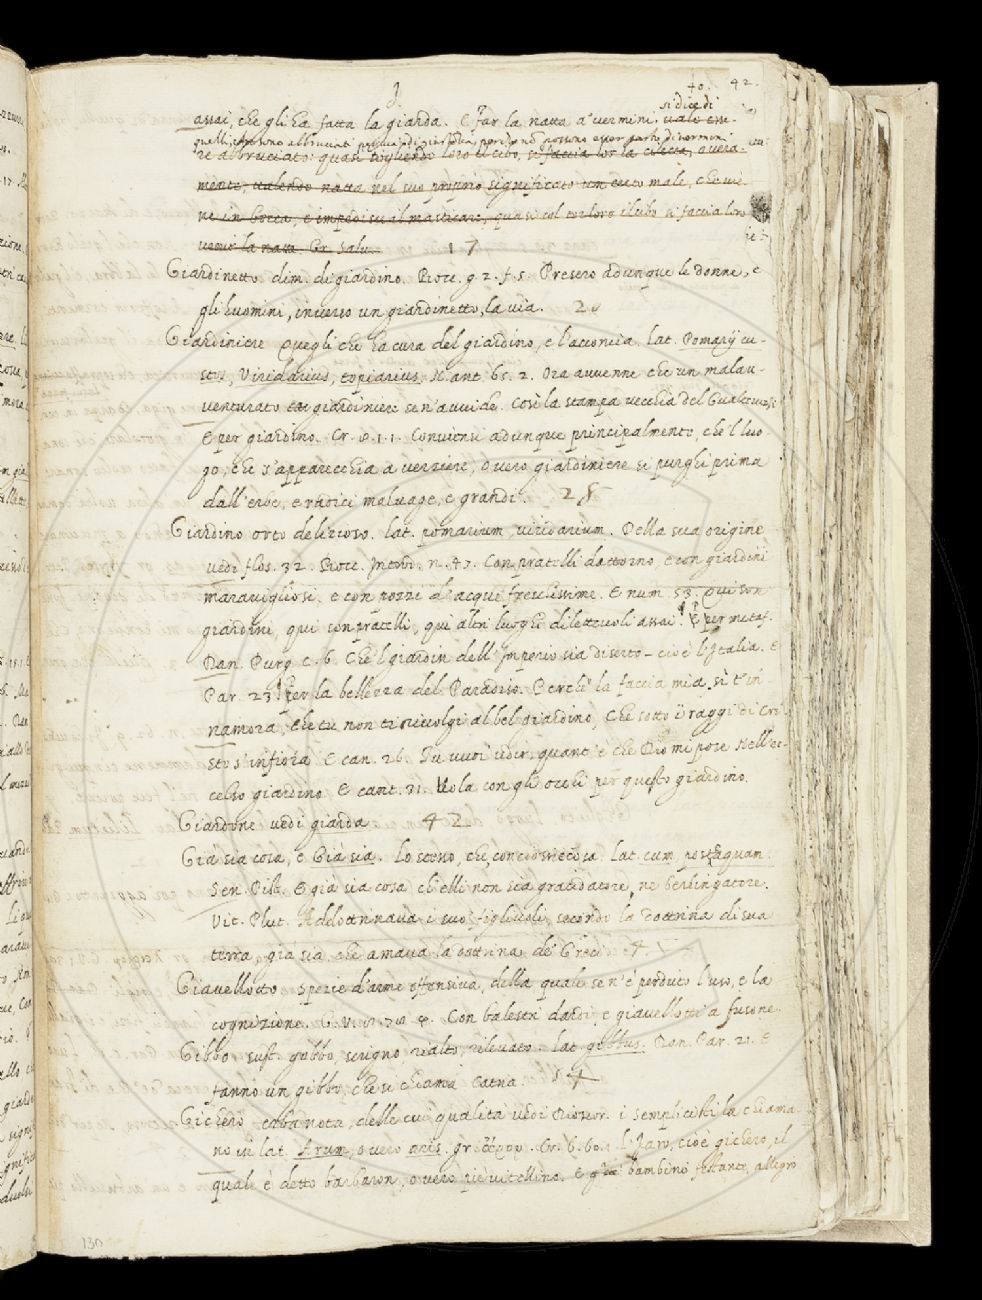 40. 42.
si dice di
assai, che gli ha fatta la giarda. E far la natta a' vermini
re abbruciato: quasi togliendo loro il cibo, si faccia lor la cilecca, o vera-
mente, valendo natta nel suo proprio significato un certo male, che vie-
ne in bocca, e impedisce il masticare, quasi col tor loro il cibo si faccia loro
venir la natta. Gr. 17
Giardinetto dim. di giardino. Bocc. g. 2. f. 5. Presero adunque le donne, e
gli huomini, inverso un giardinetto, la via. 20
Giardiniere Quegli che ha cura del giardino, e l'acconcia. lat. Pomarij cu-
stos, Viridarius, topiarius, N. ant. 65. 2. Ora avvenne che un malav-
venturato giardiniere se n'avvide. Così la stampa vecchia del
E per giardino. Cr. 8. 1. 1. Conviensi adunque principalmente, che 'l luo-
go, che s'apparecchia a verziere, o vero giardiniere si purghi prima
dall'erbe, e radici malvage, e grandi. 28
Giardino orto delizioso. lat. pomarium, viridarium. Della sua origine
vedi flos. 32. Bocc. Introd. n. 47. Con pratelli dattorno, e con giardini
maravigliosi, e con pozzi d'acque freschissime. E num. 53. Quì son
giardini, quì son pratelli, quì altri luoghi dilettevoli assai. E per metaf.
Dan. Purg. c. 6. Che 'l giardin dell'Imperio sia diserto - cioè l'Italia. E
Par. 23. Per la bellezza del Paradiso. Perchè la faccia mia sì t'in-
namora, che tu non ti rivolgi al bel giardino, che sotto i raggi di Cri-
sto s'infiora. E can. 26. Tu vuoi udir, quant'è che Dio mi pose nell'ec-
celso giardino. E cant. 31. Vola con gli occhi per questo giardino.
Giardone vedi giarda 42
Già sia cosa, e Già sia. Lo stesso, che conciossiecosa. lat. cum, postquam.
Sen. Pist. E già sia cosa ch'elli non sia gratidatore, ne berlingatore.
Vit. Plut. Addottrinava i suoi figliuoli, secondo la dottrina di sua
terra, già sia, che amava la dottrina de' Greci
Giavellotto Spezie d'arme offensiva, della quale se n'è perduto l'uso, e la
cognizione. G. V. Con balestri dardi, e giavellotti a fusone.
Gibbo sust. gobbo, scrigno, rialto, rilevato. lat. gibbus. Dan. Par. 21. E
fanno un gibbo, che si chiama Catria. 54
Gichero erba nota, delle cui qualità vedi Diosor. i semplicisti la chiama-
no in lat. Arum, o vero aris. gr. Cr. 6. 60. 1. L'Jaro, cioè gichero, il
quale è detto barbaron, o vero piè vitellino. E bambino festante, allegro
130